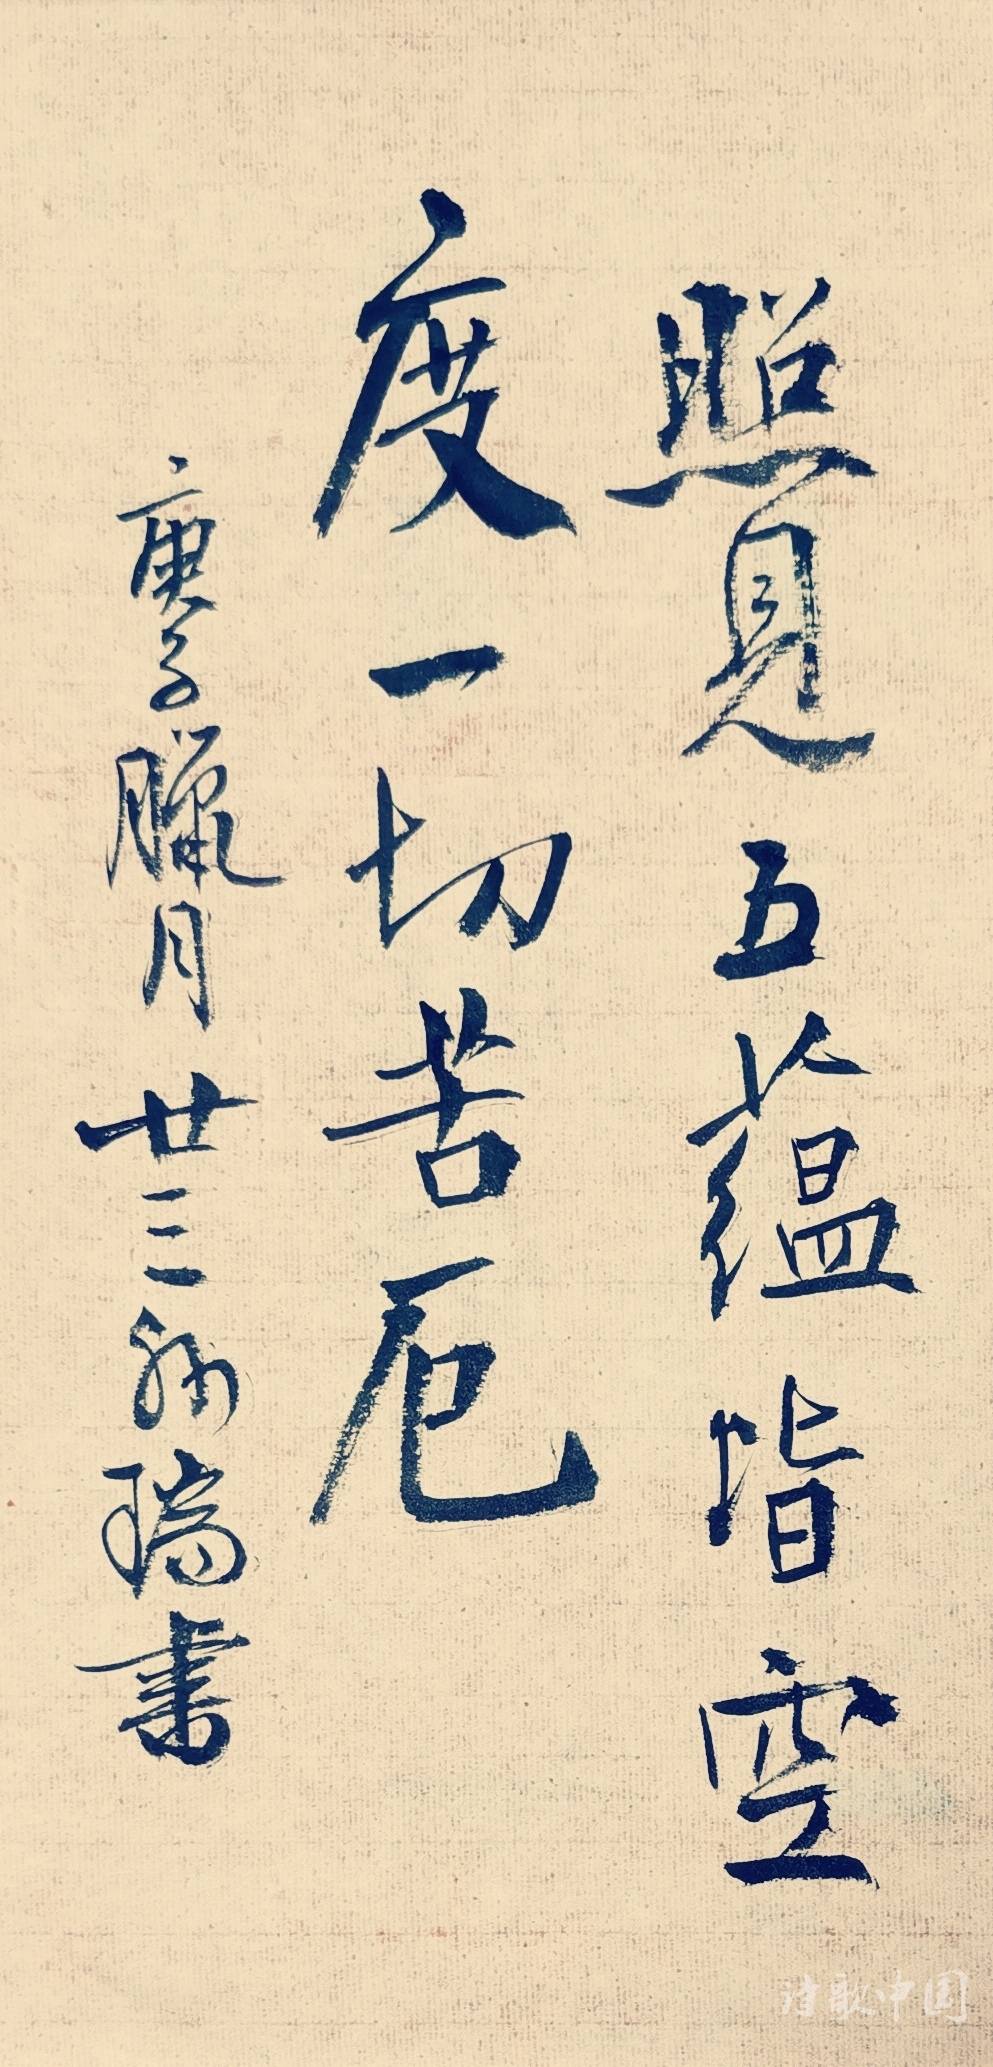 照見五蘊皆空
度一切苦厄
庚子臘月廿三 瑞書
诗歌中国